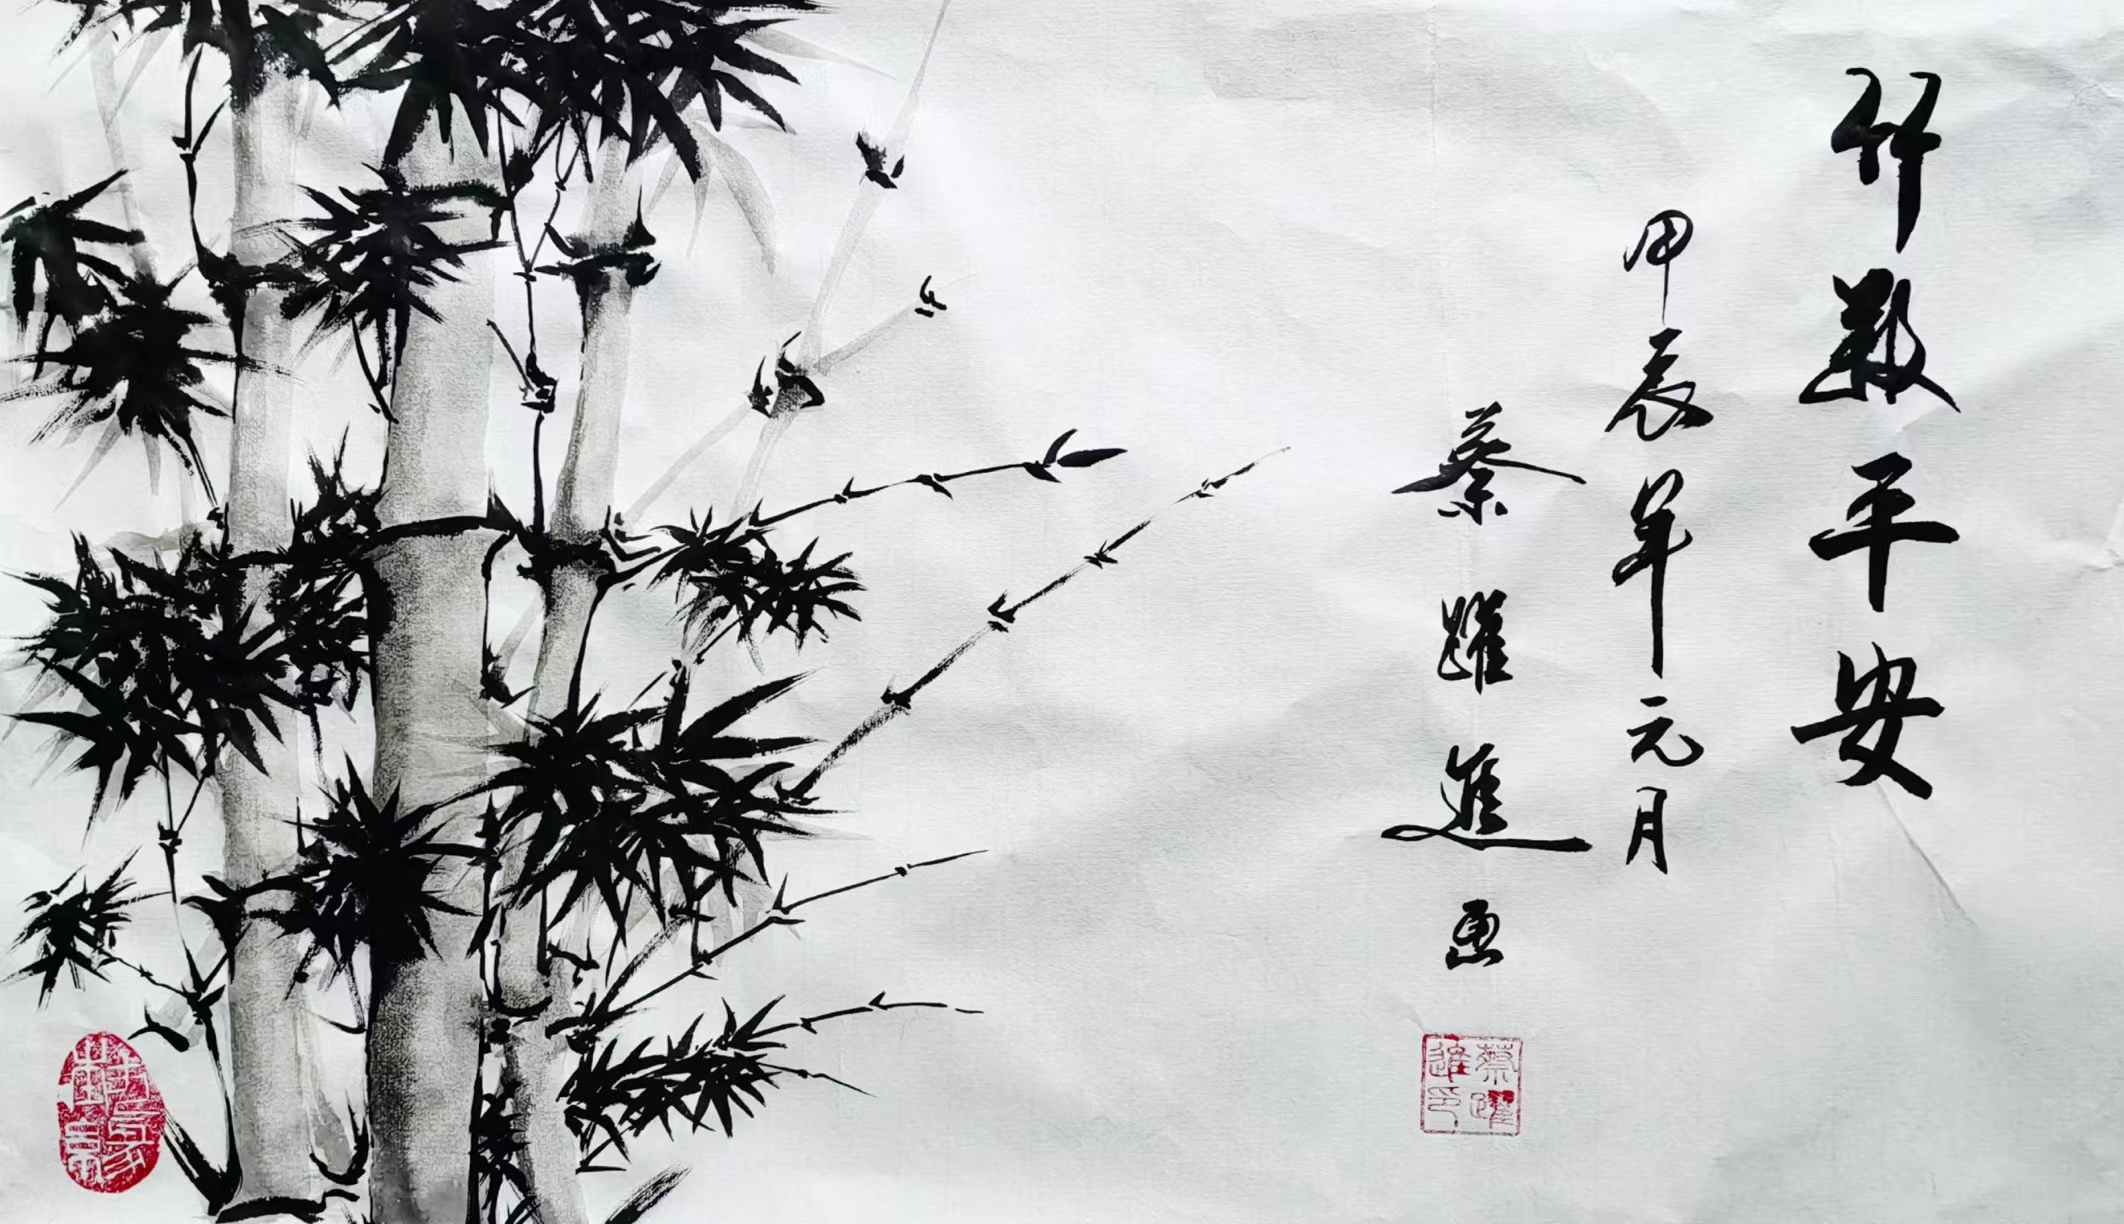 竹報平安
甲辰年元月
蔡躍進画
蔡躍
進印